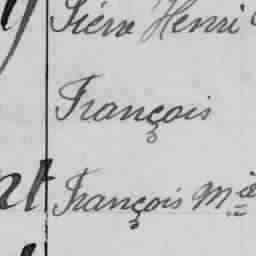 Piere Henri
François
François Mie